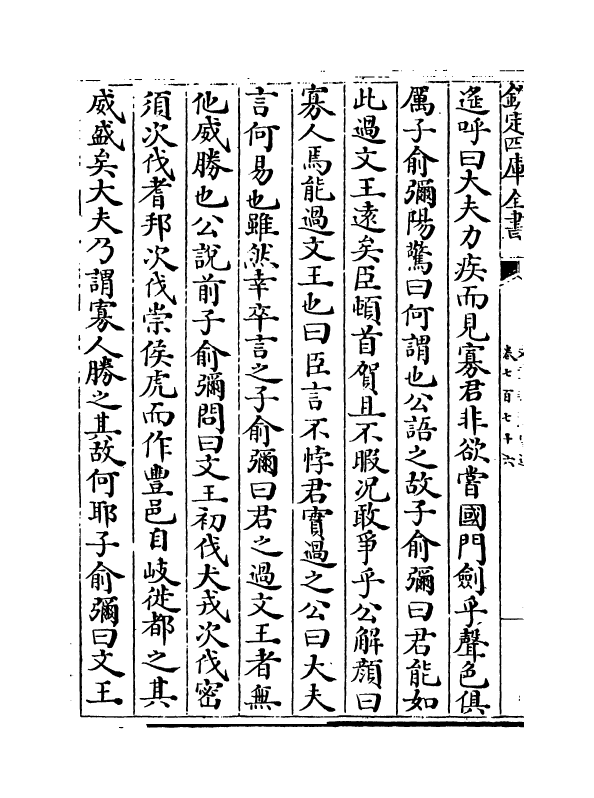 欽定四庫全書
卷七百七十六
遥呼曰大夫力疾而見寡君非欲嘗國門劍乎聲色俱
厲子俞彌陽驚曰何謂也公語之故子俞彌曰君能如
此過文王遠矣臣頓首賀且不暇况敢爭乎公解顔曰
寡人焉能過文王也曰臣言不悖君實過之公曰大夫
言何易也雖然幸卒言之子俞彌曰君之過文王者無
他威勝也公說前子俞彌問曰文王初伐犬戎次伐密
須次伐耆邦次伐崇侯虎而作豐邑自岐徙都之其
威盛矣大夫乃謂寡人勝之其故何耶子俞彌曰文王